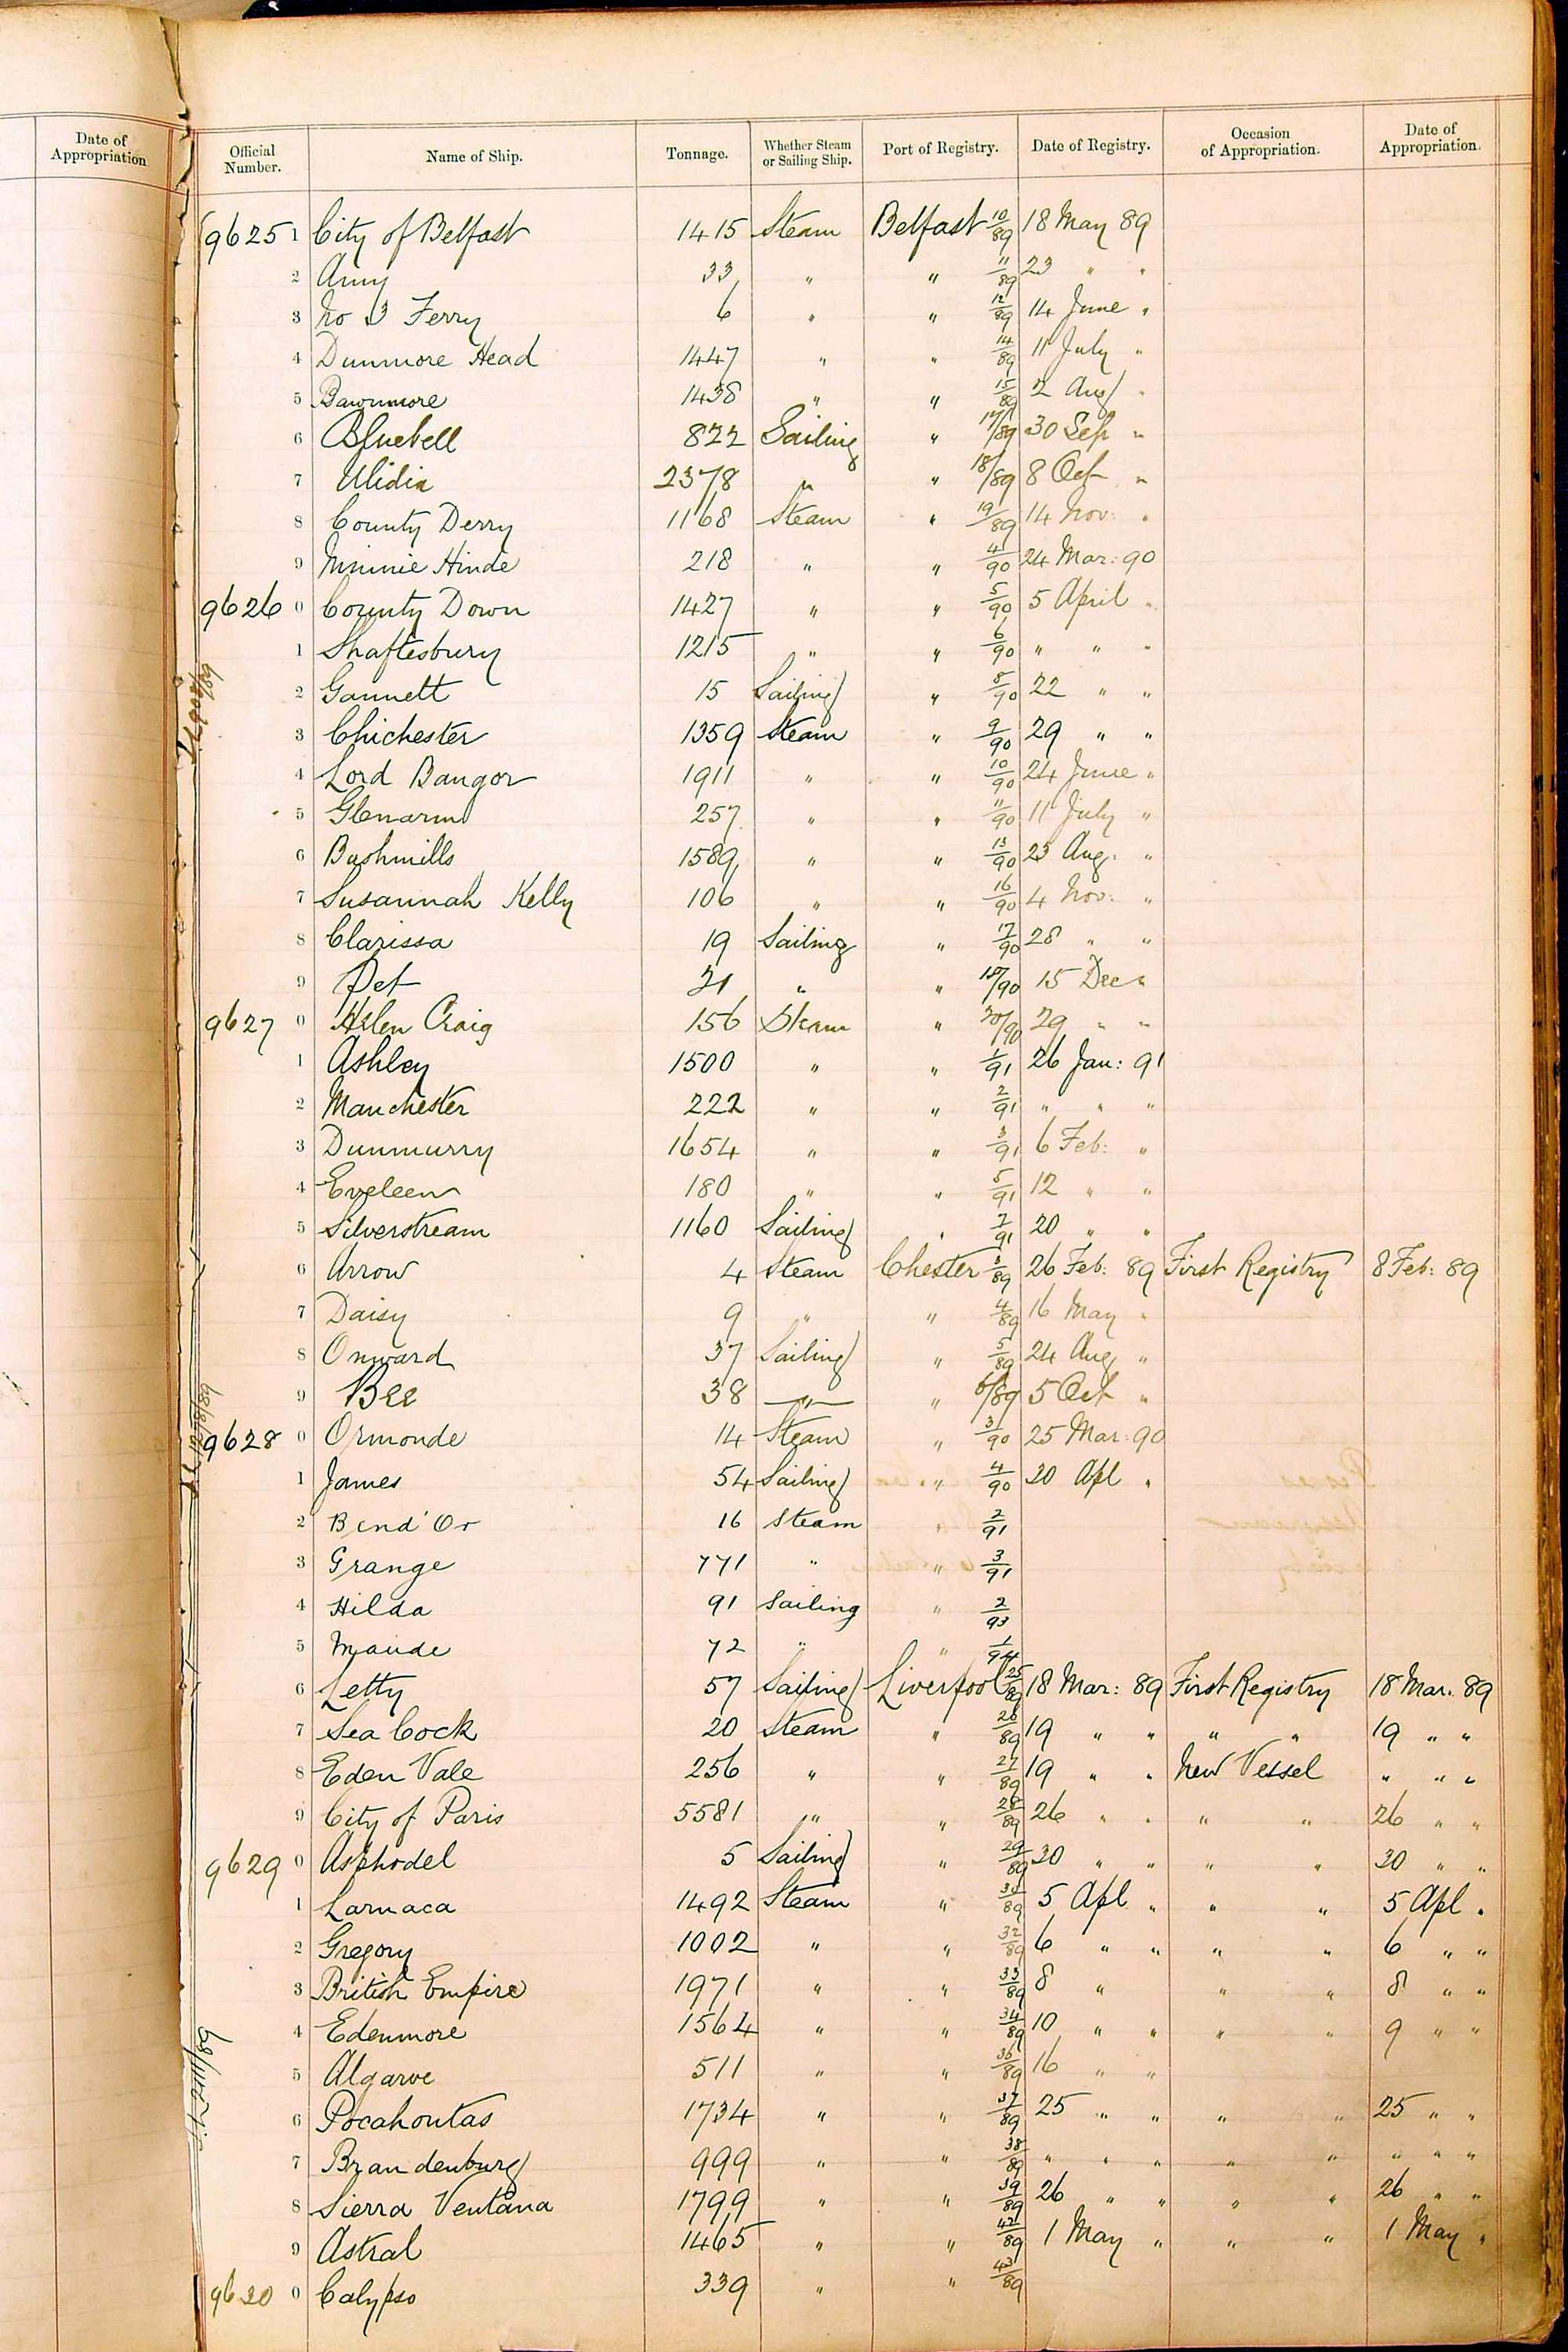 Date of Appropriation
Official Number. Name of Ship. Tonnage. Whether Steam or Sailing Ship. Port of Registry. Date of Registry. Occasion of Appropriation. Date of Appropriation.
9625 1 City of Belfast 1415 Steam Belfast 10/89 18 May 89
2 Amy 33 " " 11/89 23 " "
3 No 3 Ferry 6 " " 12/89 14 June "
4 Dunmore Head 1447 " " 14/89 11 July "
5 Bawnmore 1438 " " 15/89 2 Aug "
6 Bluebell 822 Sailing " 17/89 30 Sep "
7 Ulidia 2378 " " 18/89 8 Oct "
8 County Derry 1168 Steam " 19/89 14 Nov: "
9 Minnie Hinde 218 " " 4/90 24 Mar: 90
9626 0 County Down 1427 " " 5/90 5 April "
1 Shaftesbury 1215 " " 6/90 " " "
2 Gannett 15 Sailing " 8/90 22 " "
3 Chichester 1359 Steam " 9/90 29 " "
4 Lord Bangor 1911 " " 10/90 24 June "
5 Glenarm 257 " " 11/90 11 July "
6 Bushmills 1589 " " 13/90 23 Aug. "
7 Susannah Kelly 106 " " 16/90 4 Nov: "
8 Clarissa 19 Sailing " 17/90 28 " "
9 Pet 31 " " 18/90 15 Dec "
9627 0 Helen Craig 156 Steam " 20/90 29 " "
1 Ashley 1500 " " 1/91 26 Jan: 91
2 Manchester 222 " " 2/91 " " "
3 Dunmurry 1654 " " 3/91 6 Feb: "
4 Eveleen 180 " " 5/91 12 " "
5 Silverstream 1160 Sailing " 7/91 20 " "
6 Arrow 4 Steam Chester 3/89 26 Feb: 89 First Registry 8 Feb: 89
7 Daisy 9 " " 4/89 16 May "
8 Onward 37 Sailing " 5/89 24 Aug "
9 Bee 38 " " 6/89 5 Oct "
9628 0 Ormonde 14 Steam " 3/90 25 Mar: 90
1 James 54 Sailing " 4/90 30 Apl "
2 Bend' Or 16 Steam " 2/91
3 Grange 771 " " 3/91
4 Hilda 91 Sailing " 2/93
5 Maude 72 " " 1/94
6 Letty 57 Sailing Liverpool 25/89 18 Mar: 89 First Registry 18 Mar. 89
7 Sea Cock 20 Steam " 26/89 19 " " " " 19 " "
8 Eden Vale 256 " " 27/89 19 " " New Vessel " " "
9 City of Paris 5581 " " 28/89 26 " " " " 26 " "
9629 0 Asphodel 5 Sailing " 29/89 30 " " " " 30 " "
1 Larnaca 1492 Steam " 30/89 5 Apl " " " 5 Apl "
2 Gregory 1002 " " 32/89 6 " " " " 6 " "
3 British Empire 1971 " " 33/89 8 " " " 8 " "
4 Edenmore 1564 " " 34/89 10 " " " " 9 " "
5 Algarve 511 " " 36/89 16 " "
6 Pocahontas 1734 " " 37/89 25 " " " " 25 " "
7 Brandenburg 999 " " 38/89 " " " " " " " "
8 Sierra Ventana 1799 " " 39/89 26 " " " " 26 " "
9 Astral 1465 " " 42/89 1 May " " " 1 May "
9630 0 Calypso 339 " " 43/89